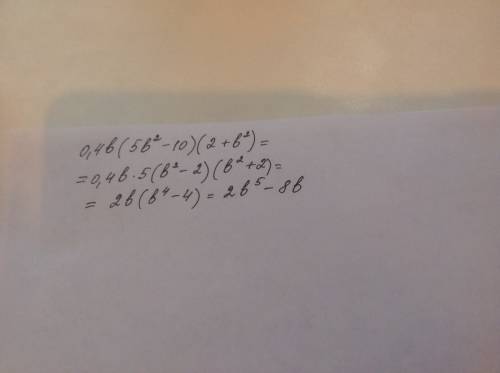 0,4b(5b²-10)(2+b²)=
=0,4b·5(b²-2)(b²+2)=
= 2b(b⁴-4)= 2b⁵-8b